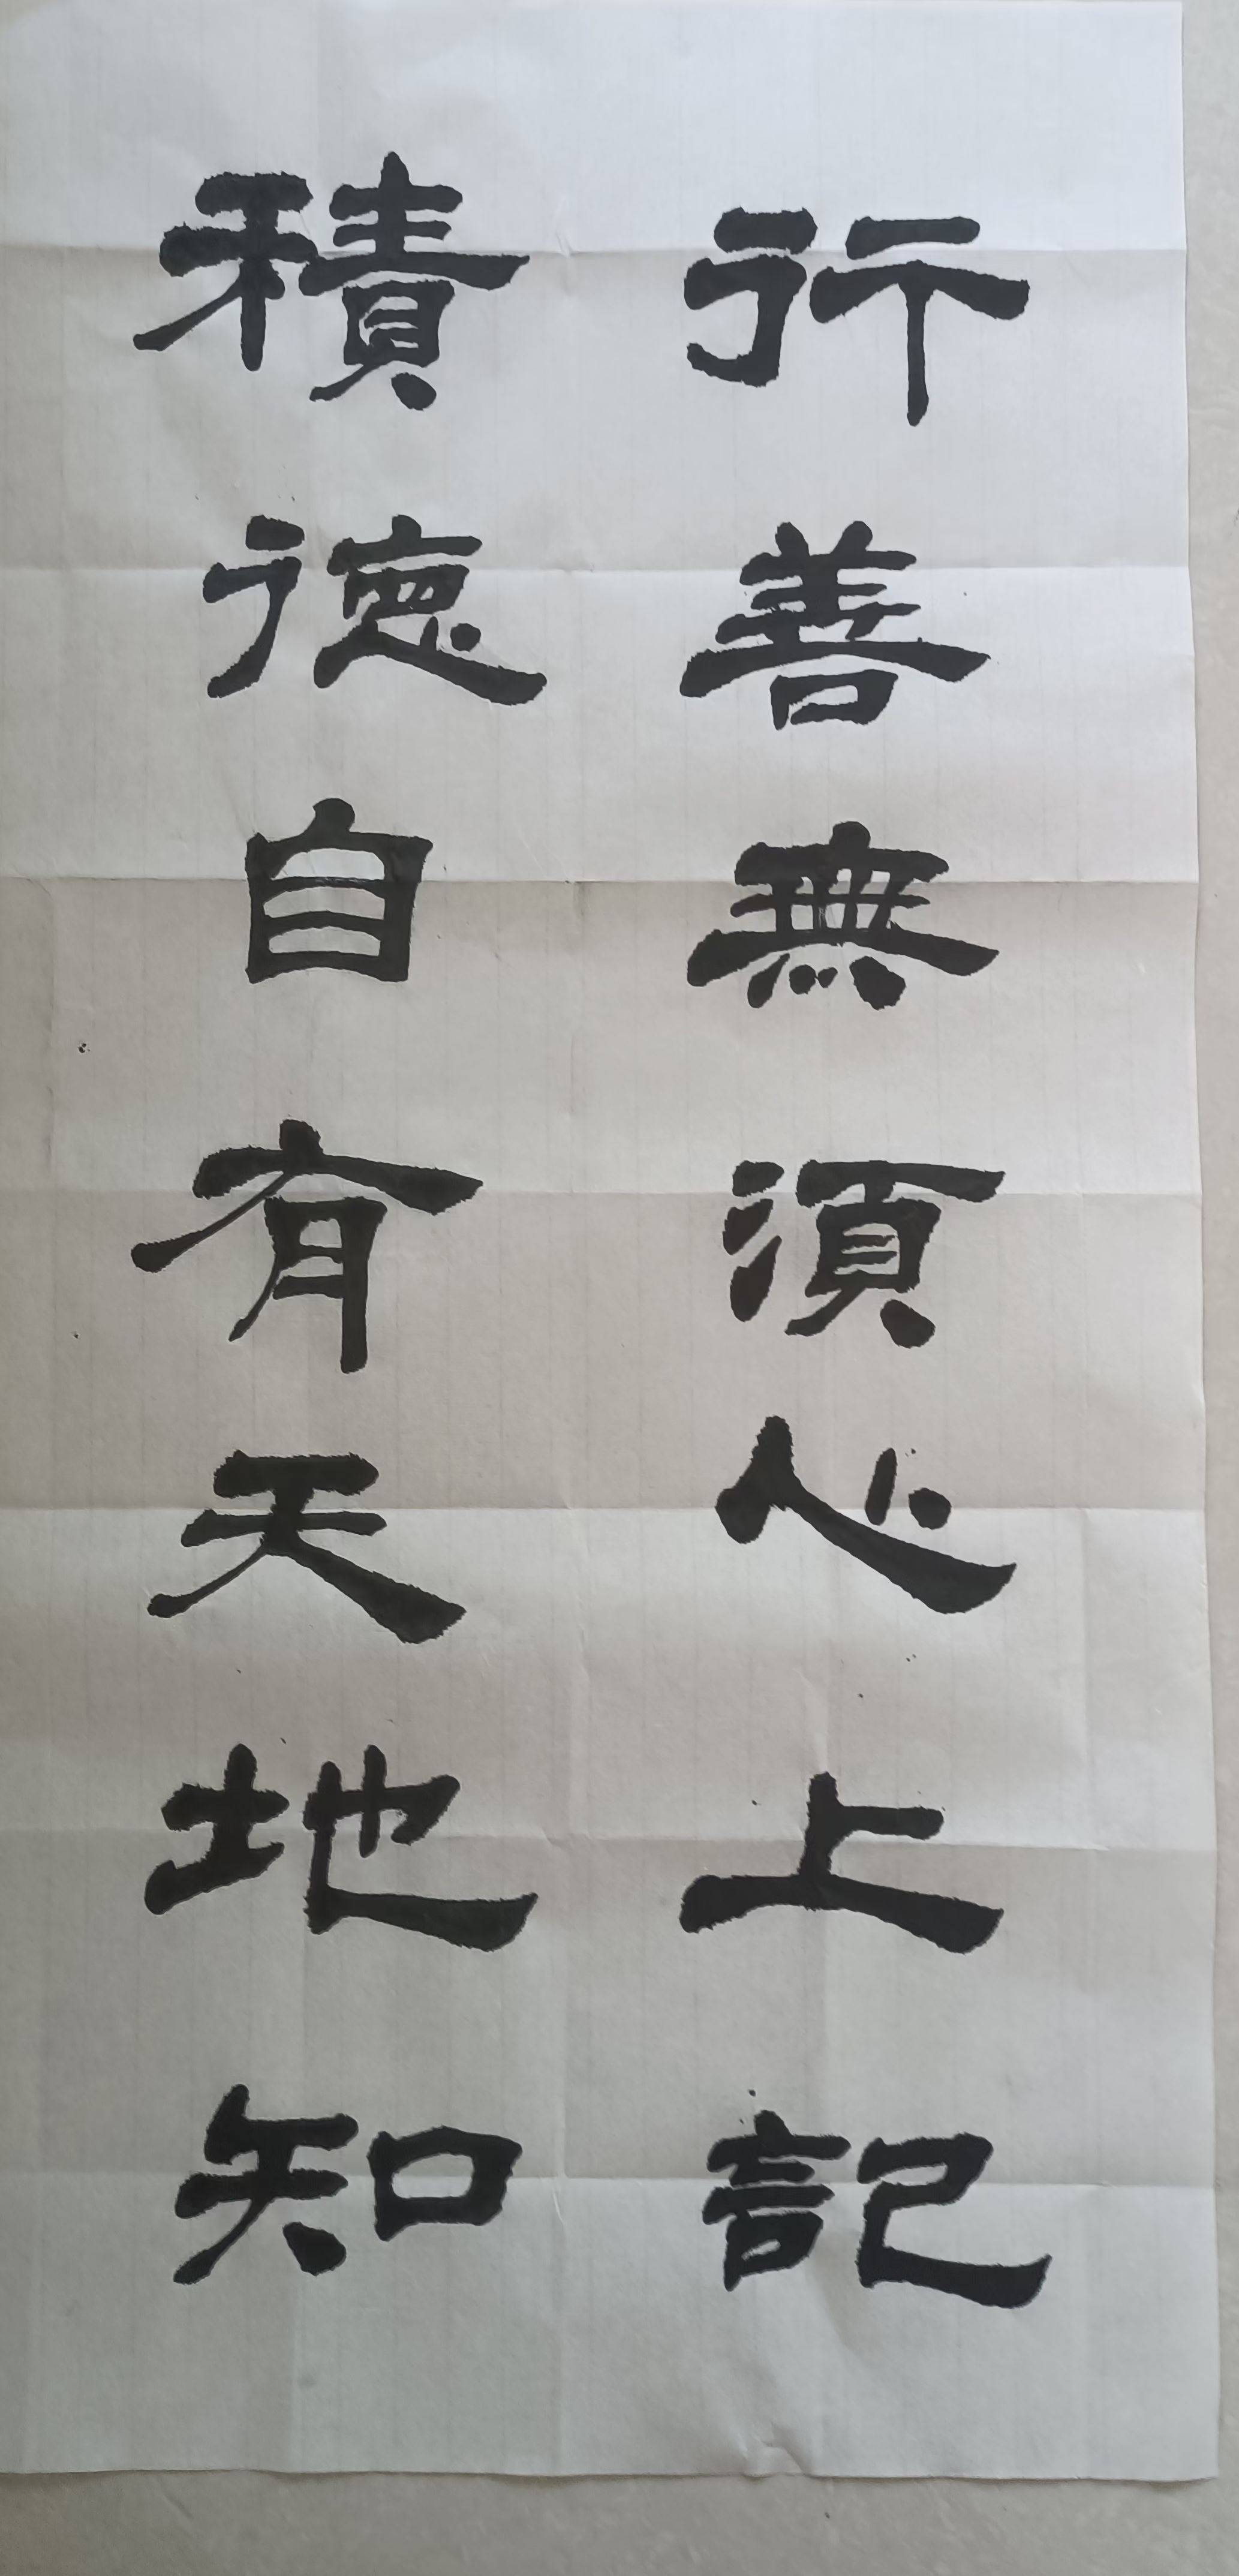 行善無須心上記
積德自有天地知